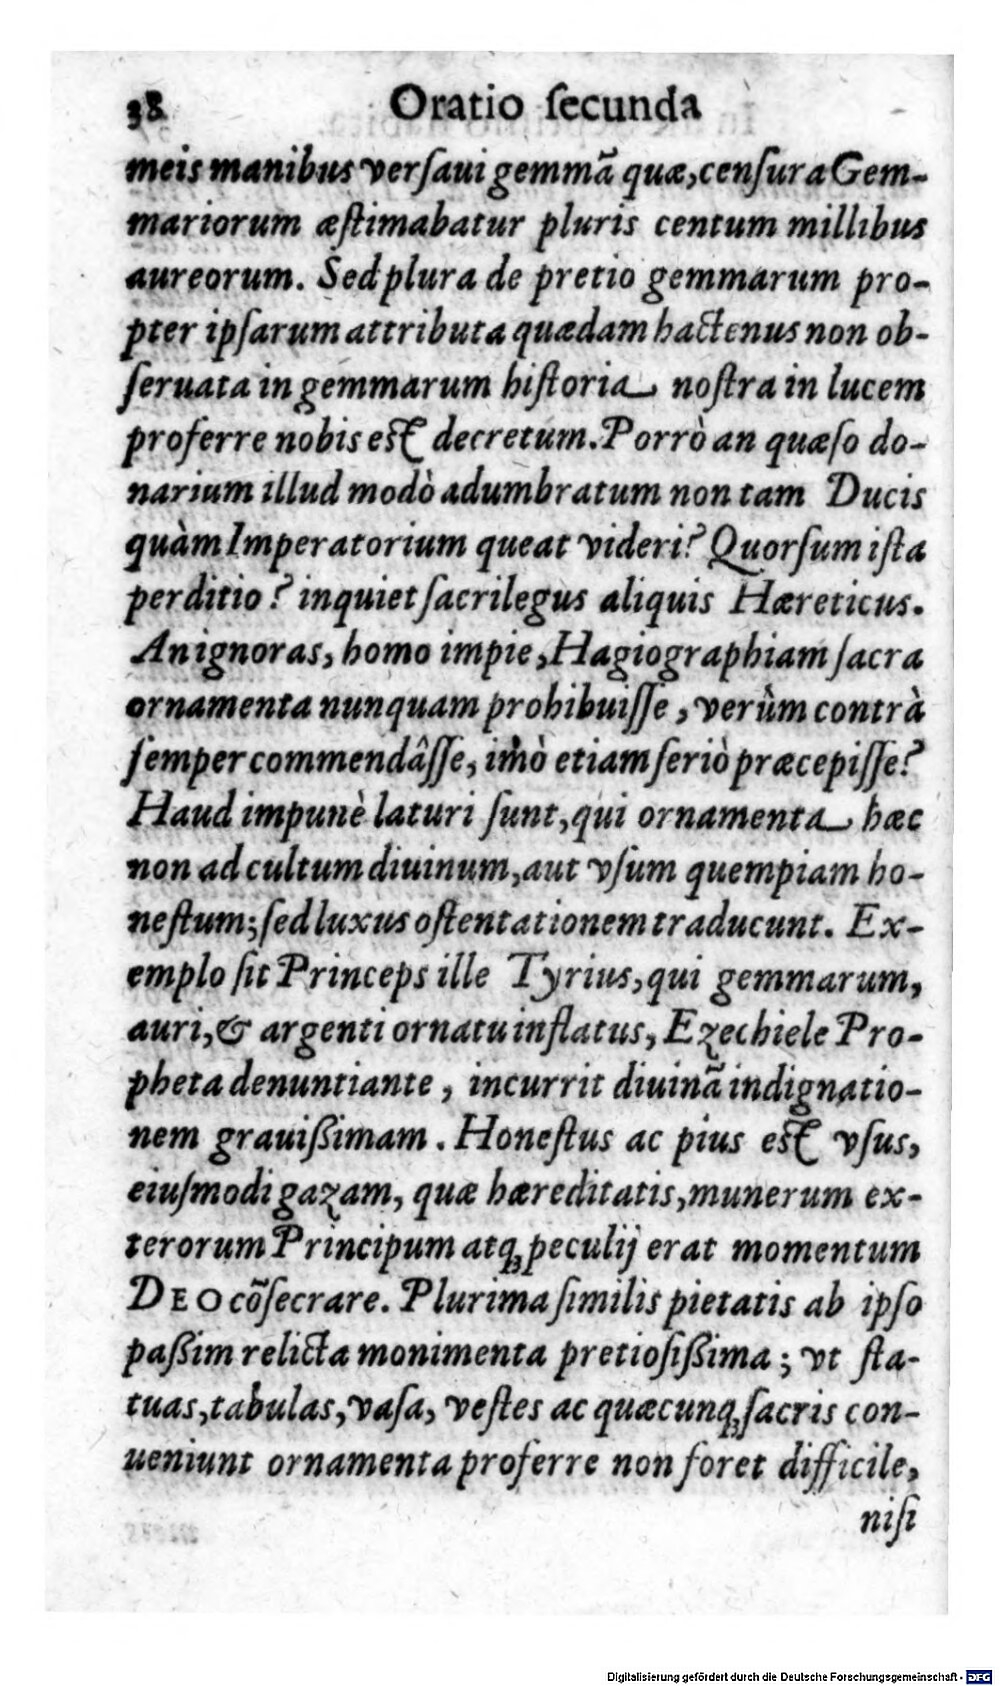 38 Oratio ſecunda
meis manibus verſaui gemmã quæ, cenſura Gem-
mariorum æſtimabatur pluris centum millibus
aureorum. Sed plura de pretio gemmarum pro-
pter ipſarum attributa quædam hactenus non ob-
ſeruata in gemmarum hiſtoria noſtra in lucem
proferre nobis eſt decretum. Porrò an quæſo do-
narium illud modò adumbratum non tam Ducis
quàm Imperatorium queat videri? Quorſum iſta
perditio? inquiet ſacrilegus aliquis Hæreticus.
An ignoras, homo impie, Hagiographiam ſacra
ornamenta nunquam prohibuiſſe, verùm contrà
ſemper commendâſſe, imò etiam ſeriò præcepiſſe?
Haud impunè laturi ſunt, qui ornamenta hæc
non ad cultum diuinum, aut vſum quempiam ho-
neſtum; ſed luxus oſtentationem traducunt. Ex-
emplo ſit Princeps ille Tyrius, qui gemmarum,
auri, & argenti ornatu inflatus, Ezechiele Pro-
pheta denuntiante, incurrit diuinã indignatio-
nem grauißimam. Honeſtus ac pius eſt vſus,
eiuſmodi gazam, quæ hæreditatis, munerum ex-
terorum Principum atq; peculij erat momentum
DEO cõſecrare. Plurima ſimilis pietatis ab ipſo
paßim relicta monimenta pretioſißima; vt ſta-
tuas, tabulas, vaſa, veſtes ac quæcunq; ſacris con-
ueniunt ornamenta proferre non foret difficile,
niſi
Digitalisierung gefördert durch die Deutsche Forschungsgemeinschaft - DFG